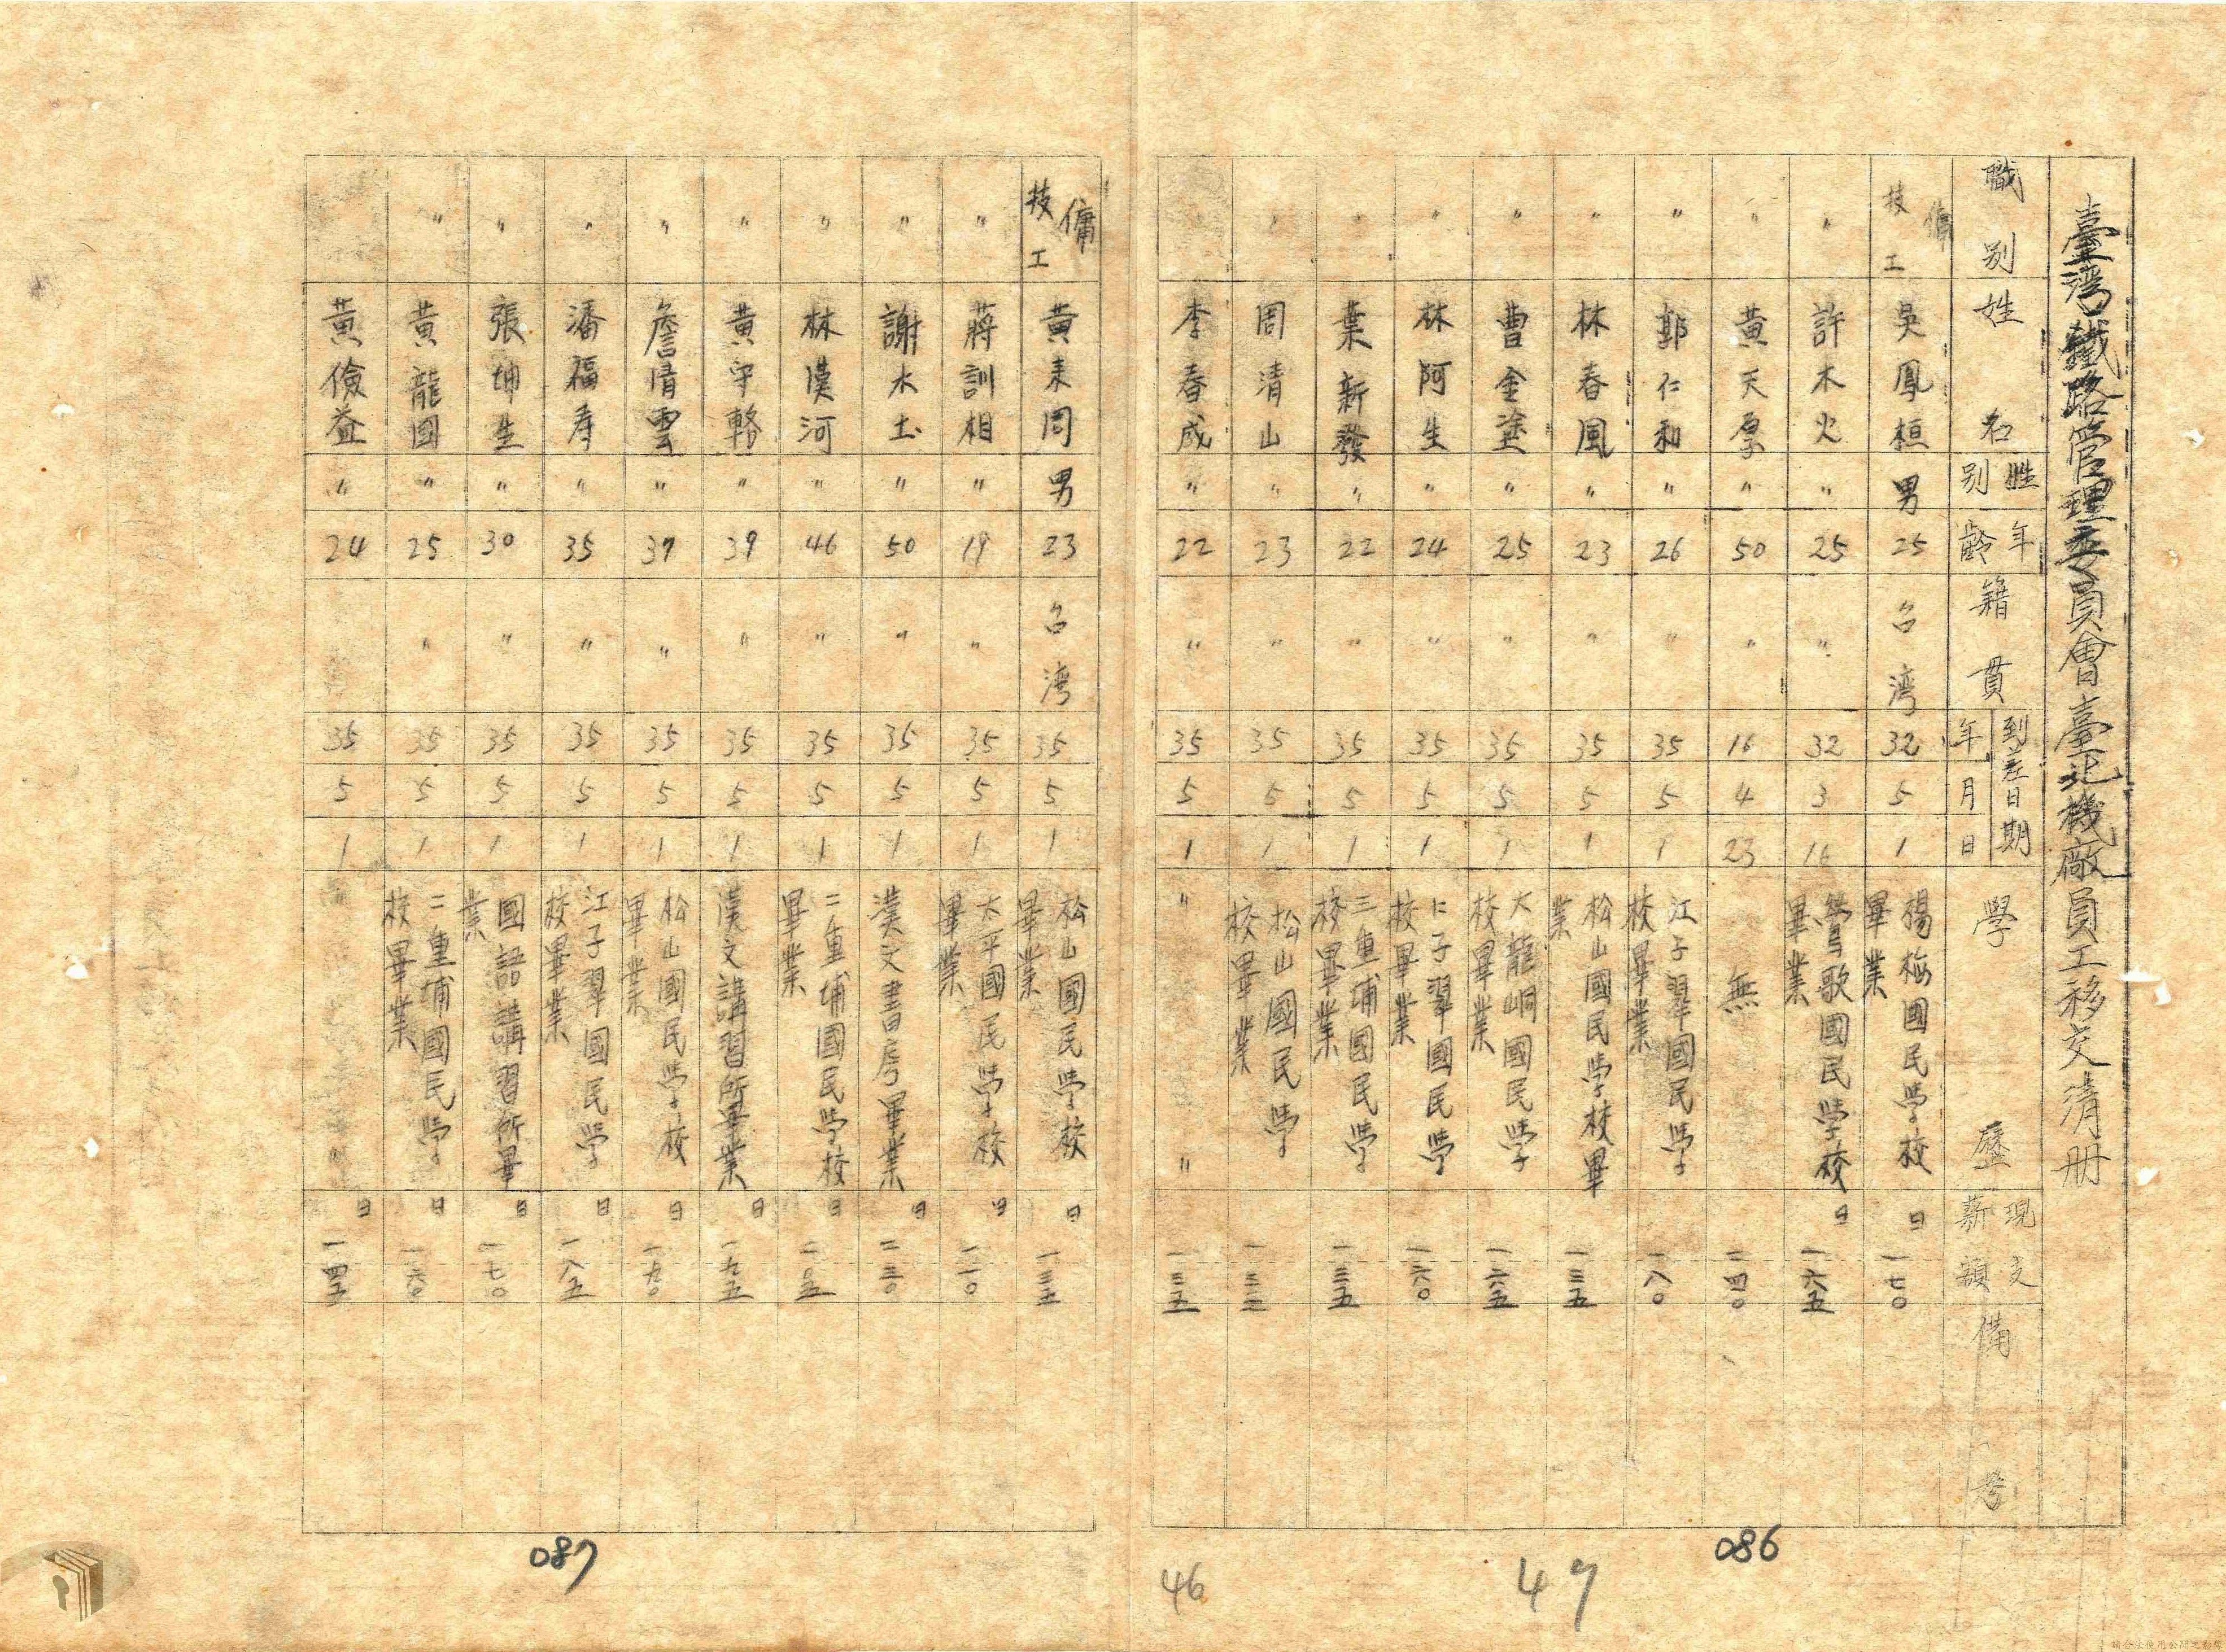 臺灣鐵路管理委員會臺北機廠員工移交清册
職別 姓名 姓別 年齡 籍貫 到差日期 年 月 日 學歷 現支薪額 備考
傭 技工 吳鳳桓 男 25 台湾 32 5 1 楊梅國民学校畢業 日 一七〇
〃 許木火 〃 25 〃 32 3 16 鶯歌國民学校畢業 日 一六五
〃 黃天厚 〃 50 〃 16 4 23 無 二四〇
〃 郭仁和 〃 26 〃 35 5 1 江子翠國民学校畢業 一八〇
〃 林春風 〃 23 〃 35 5 1 松山國民学校畢業 一三五
〃 曹金塗 〃 25 〃 35 5 1 大龍峒國民学校畢業 一六五
〃 林阿生 〃 24 〃 35 5 1 仁子翠國民学校畢業 一六〇
〃 葉新發 〃 22 〃 35 5 1 三重埔國民学校畢業 一三五
〃 周清山 〃 23 〃 35 5 1 松山國民学校畢業
李春成 〃 22 〃 35 5 1 〃 〃 一三五
傭 技工 黃来岡 男 23 台湾 35 5 1 松山國民学校畢業 日 一三五
〃 蔣訓相 〃 19 〃 35 5 1 太平國民学校畢業 日 一二〇
〃 謝木土 〃 50 〃 35 5 1 漢文書房畢業 日 二三〇
〃 林漢河 〃 46 〃 35 5 1 二重埔國民学校畢業 日 二一五
〃 黃守轄 〃 39 〃 35 5 1 漢文講習所畢業 日 一九五
〃 詹清雲 〃 37 〃 35 5 1 松山國民学校畢業 日 一九〇
〃 潘福寿 〃 35 〃 35 5 1 江子翠國民学校畢業 日 一八五
〃 張坤生 〃 30 〃 35 5 1 國語講習所畢業 日 一七〇
〃 黃龍國 〃 25 〃 35 5 1 二重埔國民学校畢業 日 一六〇
黃儉益 〃 24 35 5 1 〃 〃 日 一四五
086
087
46
47